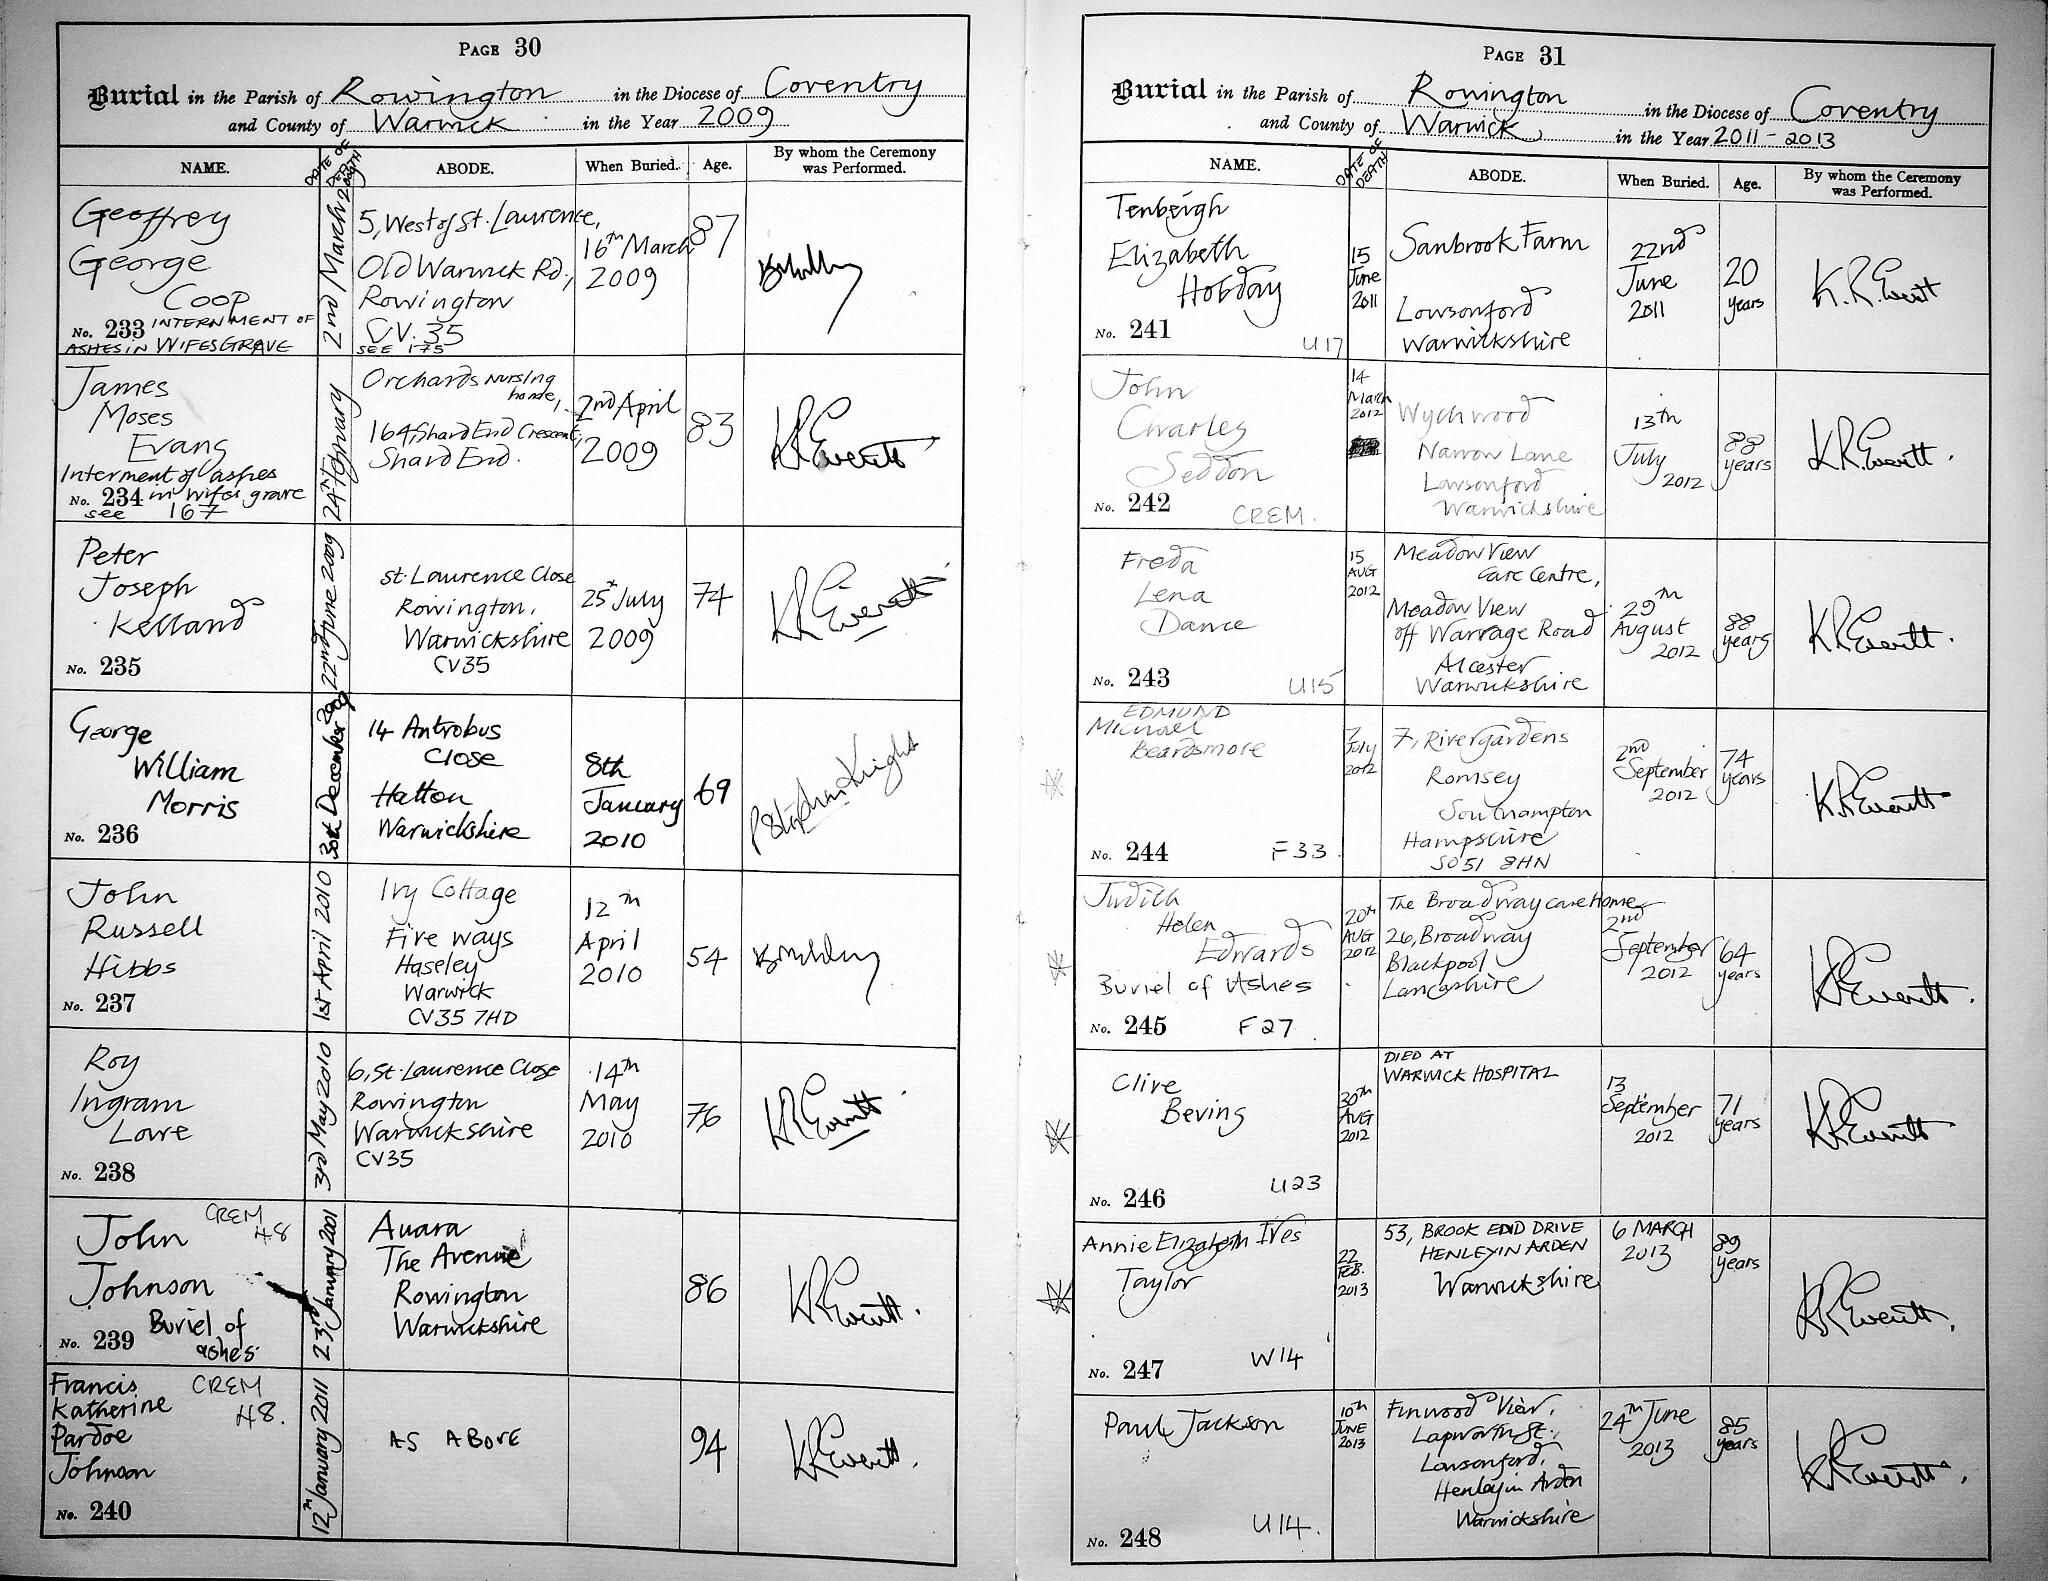 PAGE 30
Burial in the Parish of Rowington in the Diocese of Coventry
and County of Warwick in the Year 2009
NAME.
DATE OF DEATH
ABODE.
When Buried.
Age.
By whom the Ceremony
was Performed.
Geoffrey
George
Coop
No. 233 INTERNMENT OF
ASHES IN WIFES GRAVE
2nd March 2009
5, West of St. Laurence,
Old Warwick Rd.,
Rowington
CV. 35
SEE 175
16th March
2009
87
James
Moses
Evans
Interment of ashes
No. 234 in wifes grave
see 167
24th February
Orchards Nursing
home,
164, Shard End Crescent,
Shard End.
2nd April
2009
83
KR Everitt
Peter
Joseph
Kelland
No. 235
22nd June 2009
St. Laurence Close
Rowington,
Warwickshire
CV35
25th July
2009
74
KR Everitt
George
William
Morris
No. 236
30th December 2009
14 Antrobus
Close
Hatton
Warwickshire
8th
January
2010
69
P Stephen Knight
John
Russell
Hibbs
No. 237
1st April 2010
Ivy Cottage
Five ways
Haseley
Warwick
CV35 7HD
12th
April
2010
54
Roy
Ingram
Lowe
No. 238
3rd May 2010
6, St. Laurence Close
Rowington
Warwickshire
CV35
14th
May
2010
76
KR Everitt
John
CREM
H8
Johnson
No. 239 Buriel of
ashes.
23rd January 2001
Avara
The Avenue
Rowington
Warwickshire
86
KR Everitt.
Francis
Katherine
Pardoe
Johnson
CREM
H8.
No. 240
12th January 2011
AS ABOVE
94
KR Everitt.
PAGE 31
Burial in the Parish of Rowington in the Diocese of Coventry
and County of Warwick, in the Year 2011 - 2013
NAME.
DATE OF DEATH
ABODE.
When Buried.
Age.
By whom the Ceremony
was Performed.
Tenbeigh
Elizabeth
Hobday
No. 241
U17
15
June
2011
Sanbrook Farm
Lowsonford
Warwickshire
22nd
June
2011
20
years
K.R. Everitt
John
Charles
Seddon
No. 242
CREM.
14
March
2012
Wychwood
Narrow Lane
Lowsonford
Warwickshire
13th
July
2012
88
years
KR Everitt.
Freda
Lena
Dance
No. 243
U15
15
AUG
2012
Meadow View
Care Centre,
Meadow View
off Warrage Road
Alcester
Warwickshire
29th
August
2012
88
years
KR Everitt.
EDMUND
Michael
Beardsmore
No. 244
F33
7
July
2012
7, Rivergardens
Romsey
Southampton
Hampshire
SO51 8HN
2nd
September
2012
74
years
KR Everitt
Judith
Helen
Edwards
Buriel of Ashes
No. 245
F27
20th
AUG
2012
The Broadway care home
26, Broadway
Blackpool
Lancashire
2nd
September
2012
64
years
KR Everitt.
Clive
Beving
No. 246
U23
30th
AUG
2012
DIED AT
WARWICK HOSPITAL
13
September
2012
71
years
KR Everitt
Annie Elizabeth Ives
Taylor
No. 247
W14
22
FEB.
2013
53, BROOK END DRIVE
HENLEY IN ARDEN
Warwickshire
6 MARCH
2013
89
years
KR Everitt.
Paul Jackson
No. 248
U14.
10th
JUNE
2013
Finwood View,
Lapworth St.
Lowsonford,
Henley in Arden
Warwickshire
24th June
2013
85
years
KR Everitt.